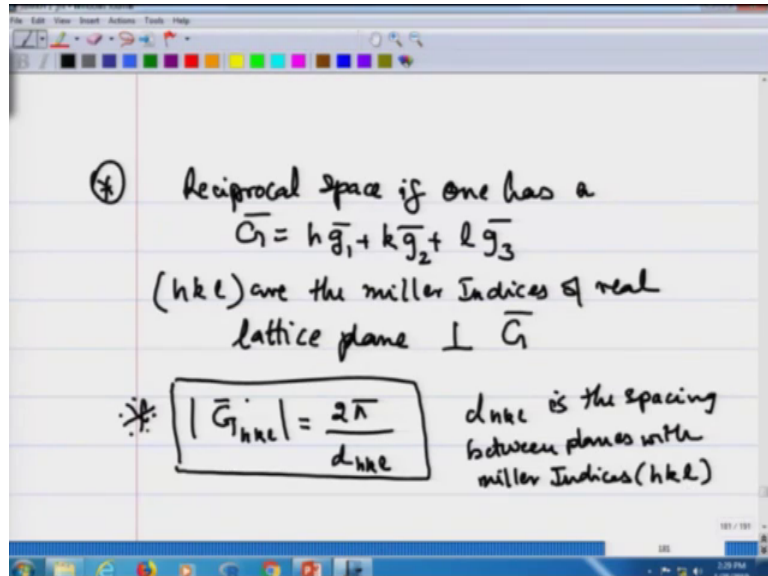 File Edit View Insert Actions Tools Help
B I
* Reciprocal space if one has a
G̅ = h g̅₁ + k g̅₂ + l g̅₃
(hkl) are the miller Indices of real
lattice plane ⊥ G̅
* |G̅hkl| = 2π / dhkl
dhkl is the spacing
between planes with
miller Indices (hkl)
181 / 181
181
2:29 PM